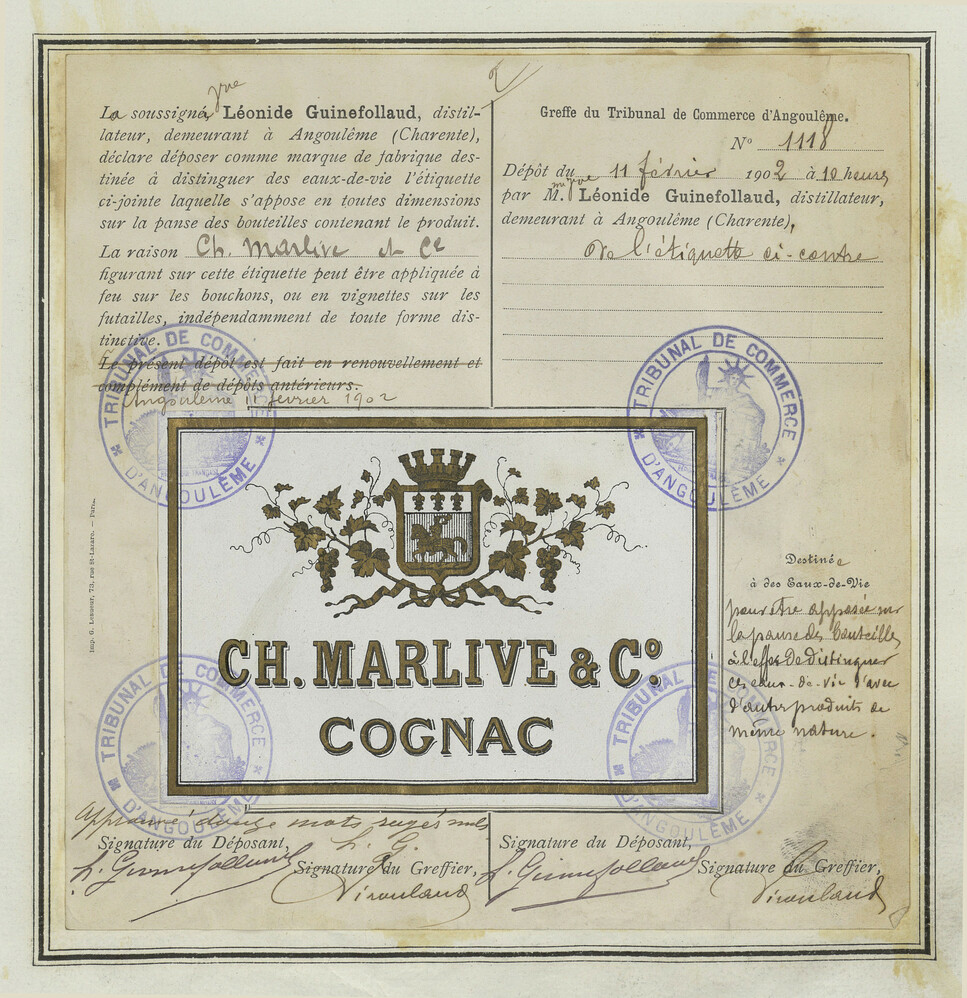 La soussignée Vve Léonide Guinefollaud, distil-
lateur, demeurant à Angoulême (Charente),
déclare déposer comme marque de fabrique des-
tinée à distinguer des eaux-de-vie l'étiquette
ci-jointe laquelle s'appose en toutes dimensions
sur la panse des bouteilles contenant le produit.
La raison Ch. Marlive et Ce
figurant sur cette étiquette peut être appliquée à
feu sur les bouchons, ou en vignettes sur les
futailles, indépendamment de toute forme dis-
tinctive.
Le présent dépôt est fait en renouvellement et
complément de dépôts antérieurs.
Angoulême 11 février 1902
Greffe du Tribunal de Commerce d'Angoulême.
No 1118
Dépôt du 11 février 1902 à 10 heures
par Mme Vve Léonide Guinefollaud, distillateur,
demeurant à Angoulême (Charente),
de l'étiquette ci-contre
TRIBUNAL DE COMMERCE D'ANGOULÊME
TRIBUNAL DE COMMERCE D'ANGOULÊME
CH. MARLIVE & Co.
COGNAC
Imp. G. Lesueur, 73, rue St-Lazare. — Paris.
Destinée
à des Eaux-de-Vie
pour être apposée sur
la panse des bouteilles
à l'effet de distinguer
ces eaux-de-vie d'avec
d'autres produits de
même nature.
TRIBUNAL DE COMMERCE D'ANGOULÊME
TRIBUNAL DE COMMERCE D'ANGOULÊME
Approuvé onze mots rayés nuls
L. G.
Signature du Déposant,
L. Guinefollaud
Signature du Greffier,
Signature du Déposant,
L. Guinefollaud
Signature du Greffier,